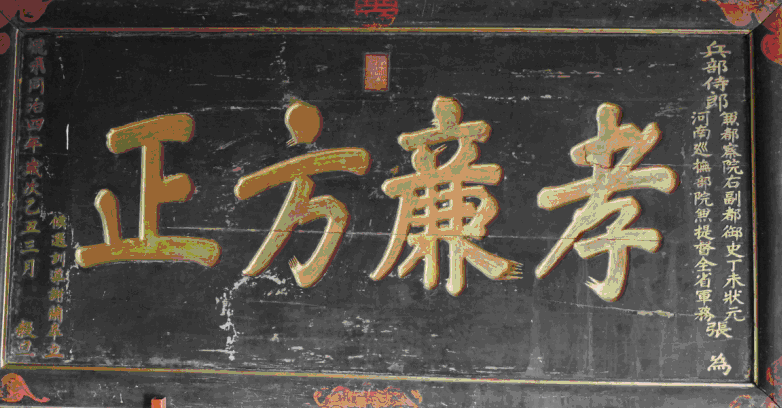 兵部侍郎
兼都察院右副都御史丁未狀元
河南巡撫部院兼提督全省軍務
張 為
孝廉方正
候選訓導謝
同治四年歲次乙丑三月